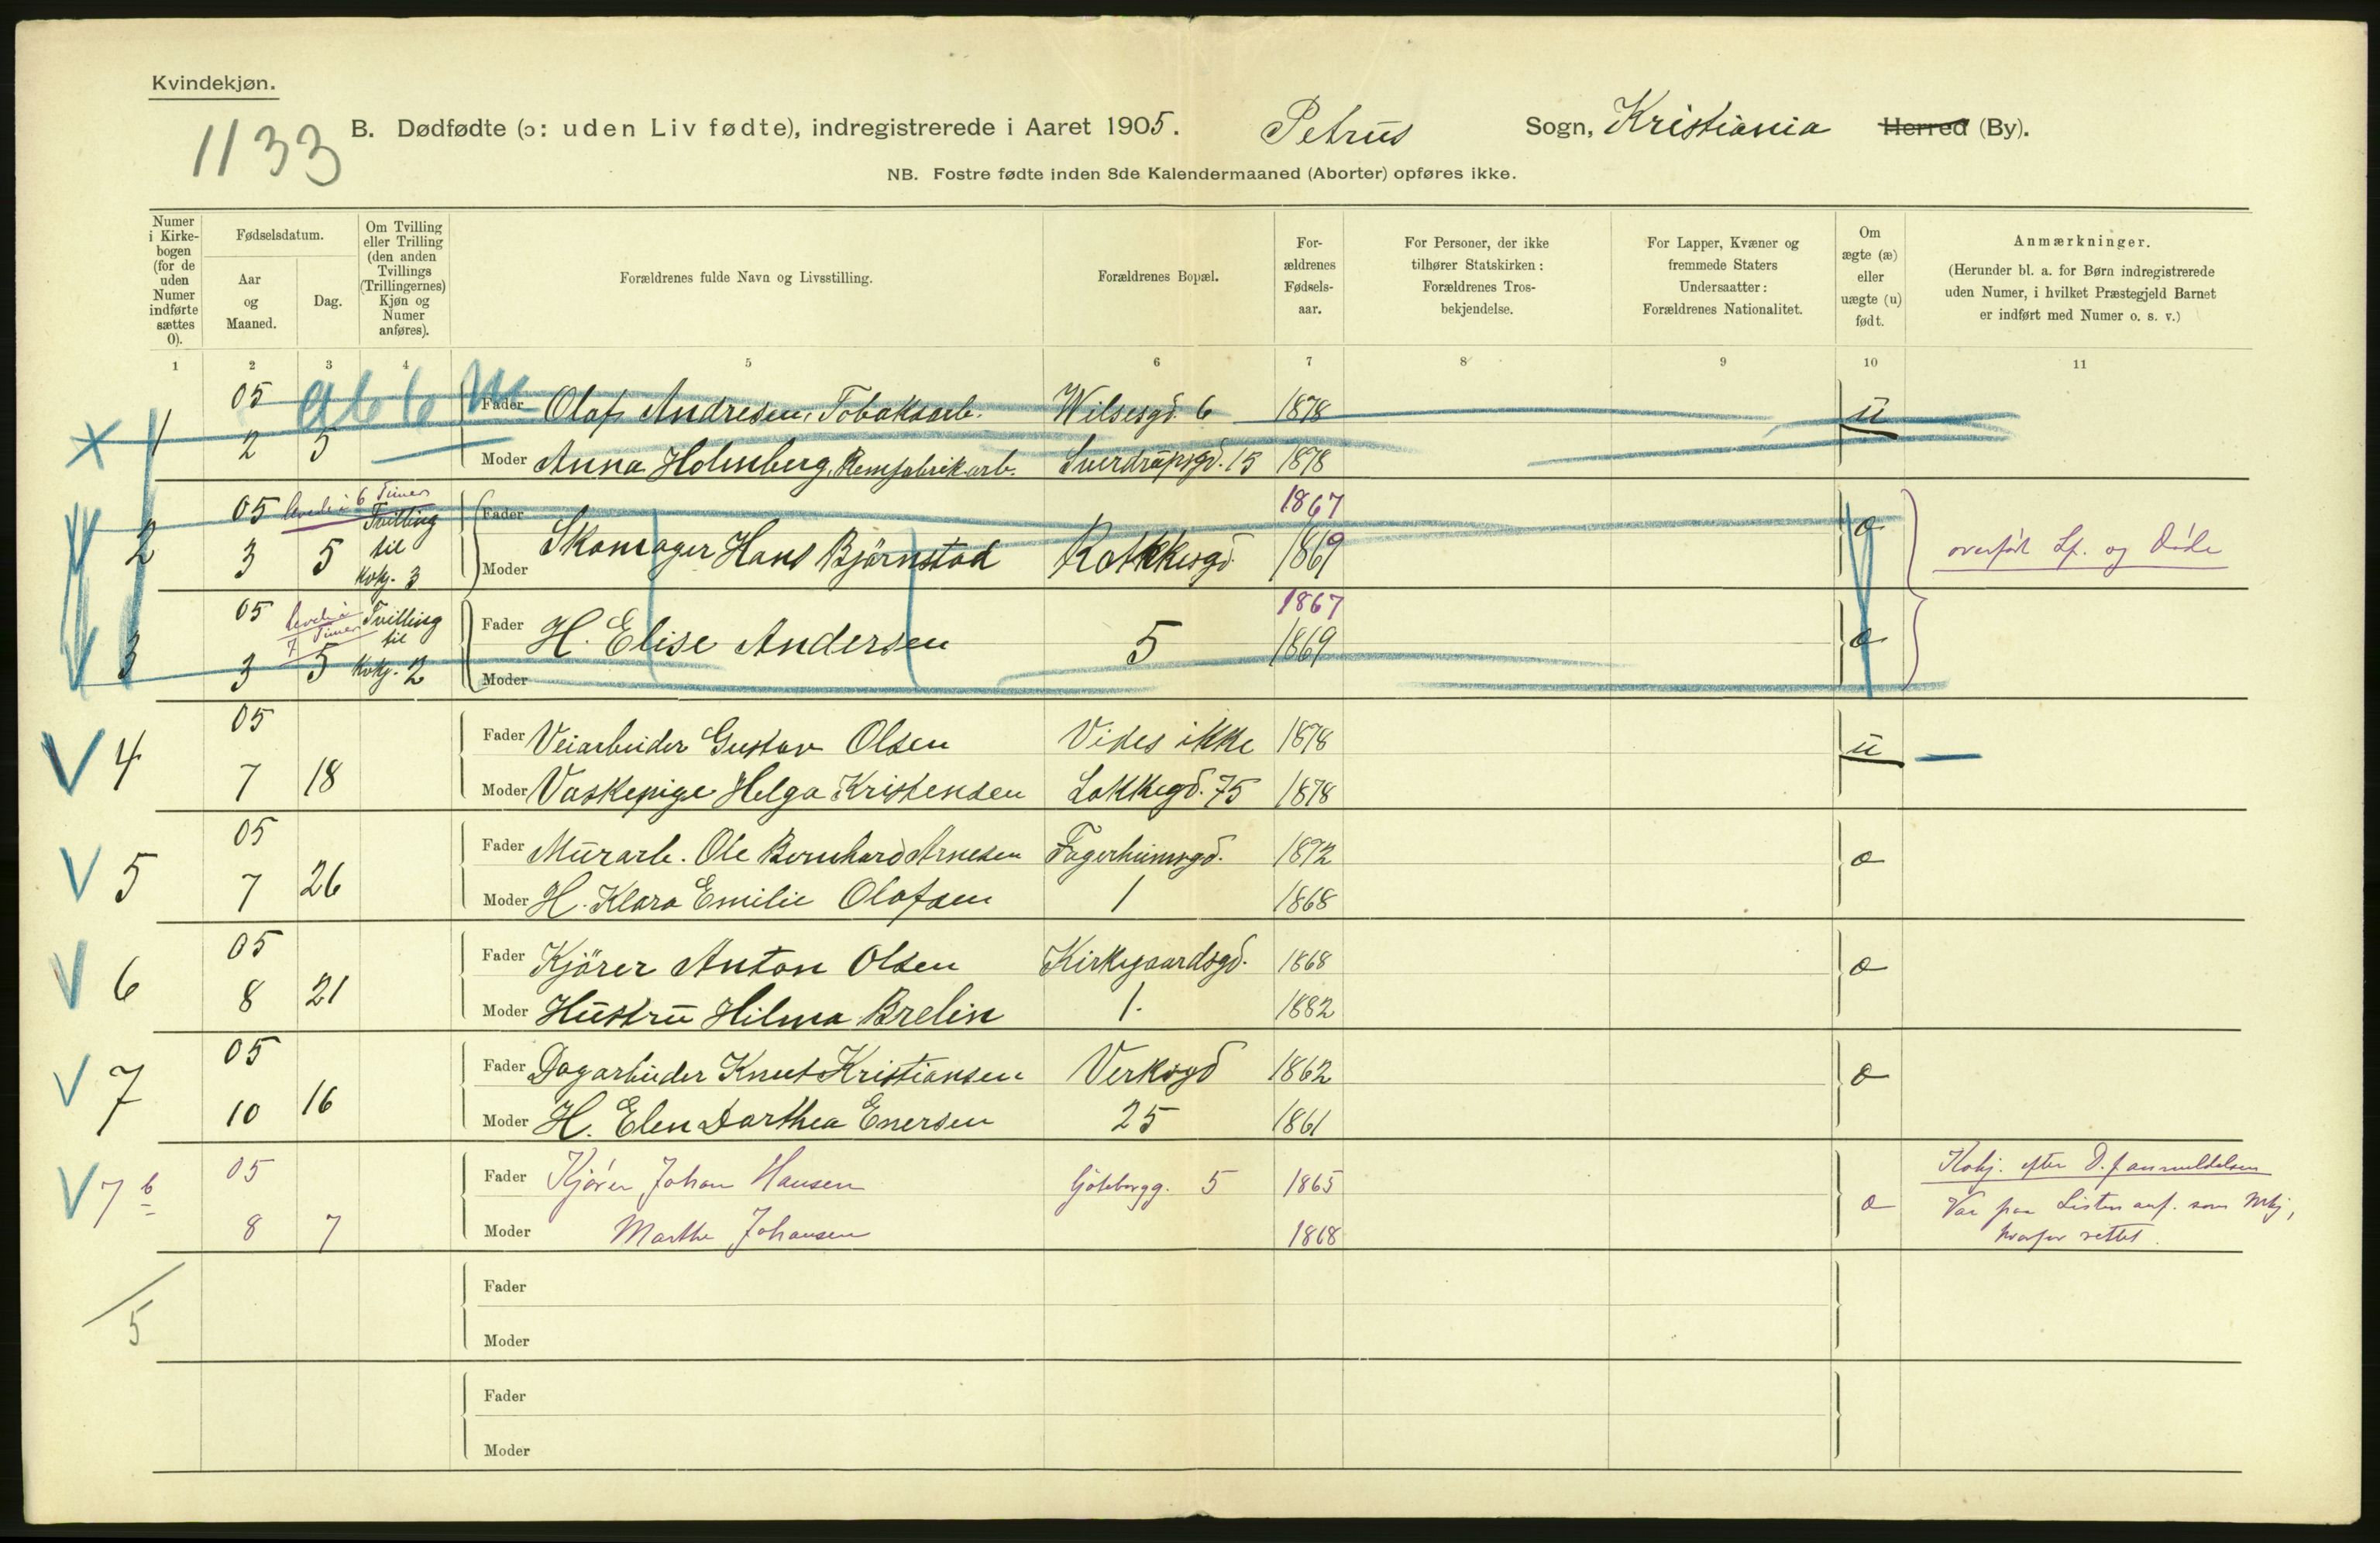 Kvindekjøn.
1133
B. Dødfødte (ɔ: uden Liv fødte), indregistrerede i Aaret 1905. Petrus Sogn, Kristiania Herred (By).
NB. Fostre fødte inden 8de Kalendermaaned (Aborter) opføres ikke.
Numer i Kirkebogen (for de uden Numer indførte sættes 0).
Fødselsdatum.
Aar og Maaned.
Dag.
Om Tvilling eller Trilling (den anden Tvillings (Trillingernes) Kjøn og Numer anføres).
Forældrenes fulde Navn og Livsstilling.
Forældrenes Bopæl.
Forældrenes Fødselsaar.
For Personer, der ikke tilhører Statskirken: Forældrenes Trosbekjendelse.
For Lapper, Kvæner og fremmede Staters Undersaatter: Forældrenes Nationalitet.
Om ægte (æ) eller uægte (u) født.
Anmærkninger.
(Herunder bl. a. for Børn indregistrerede uden Numer, i hvilket Præstegjeld Barnet er indført med Numer o. s. v.)
1 2 3 4 5 6 7 8 9 10 11
05 Fader Olaf Andresen, Tobaksarb. Wilsesgd. 6 1878 u
1 2 5 Moder Anna Holmberg, Remfabrikarb. Sverdrupsgd. 15 1878
05 levede i 6 Timer Tvilling til Kvkj. 3 Fader 1867
2 3 5 Skomager Hans Bjørnstad Moder Rathkesgd. 1869 æ overført Lf. og Døde
05 levede i 7 Timer Tvilling til Kvkj. 2 Fader H. Elise Andersen 5 1867
3 3 5 Moder 1869 æ
05 Fader Veiarbeider Gustav Olsen Vides ikke 1878 u
4 7 18 Moder Vaskepige Helga Kristensen Lakkegd. 75 1878
05 Fader Murarb. Ole Bernhard Arnesen Fagerheimsgd. 1872 æ
5 7 26 Moder H. Klara Emilie Olafsen 1 1868
05 Fader Kjører Anton Olsen Kirkegaardsgd. 1868 æ
6 8 21 Moder Hustru Hilma Brelin 1. 1882
05 Fader Dagarbeider Knut Kristiansen Verksgd 1862 æ
7 10 16 Moder H. Elen Dorthea Enersen 25 1861
05 Fader Kjører Johan Hansen Göteborgg. 5 1865 æ Kvkj. efter D.f. anmeldelsen
7b 8 7 Moder Marthe Johansen 1868 Var paa Listen anf. som Mkj,
hvorfor rettet.
Fader
5 Moder
Fader
Moder